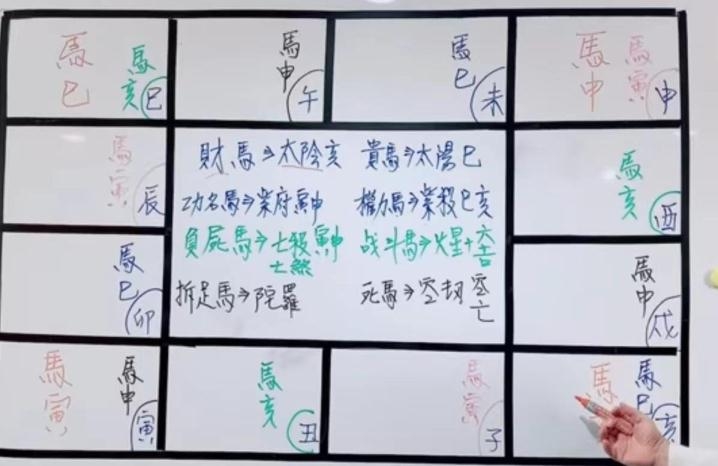 馬巳
馬亥
巳
馬申
午
馬巳
未
馬申
馬寅
申
馬寅
辰
財馬⇒太陰亥 貴馬⇒太陽巳
功名馬⇒紫府寅申 權力馬⇒紫殺巳亥
負屍馬⇒七殺寅申 战斗馬⇒火星+六吉
七煞
折足馬⇒陀羅 死馬⇒空劫空亡
馬亥
酉
馬巳
卯
馬申
戌
馬寅
馬申
寅
馬亥
丑
馬寅
子
馬
馬巳
亥